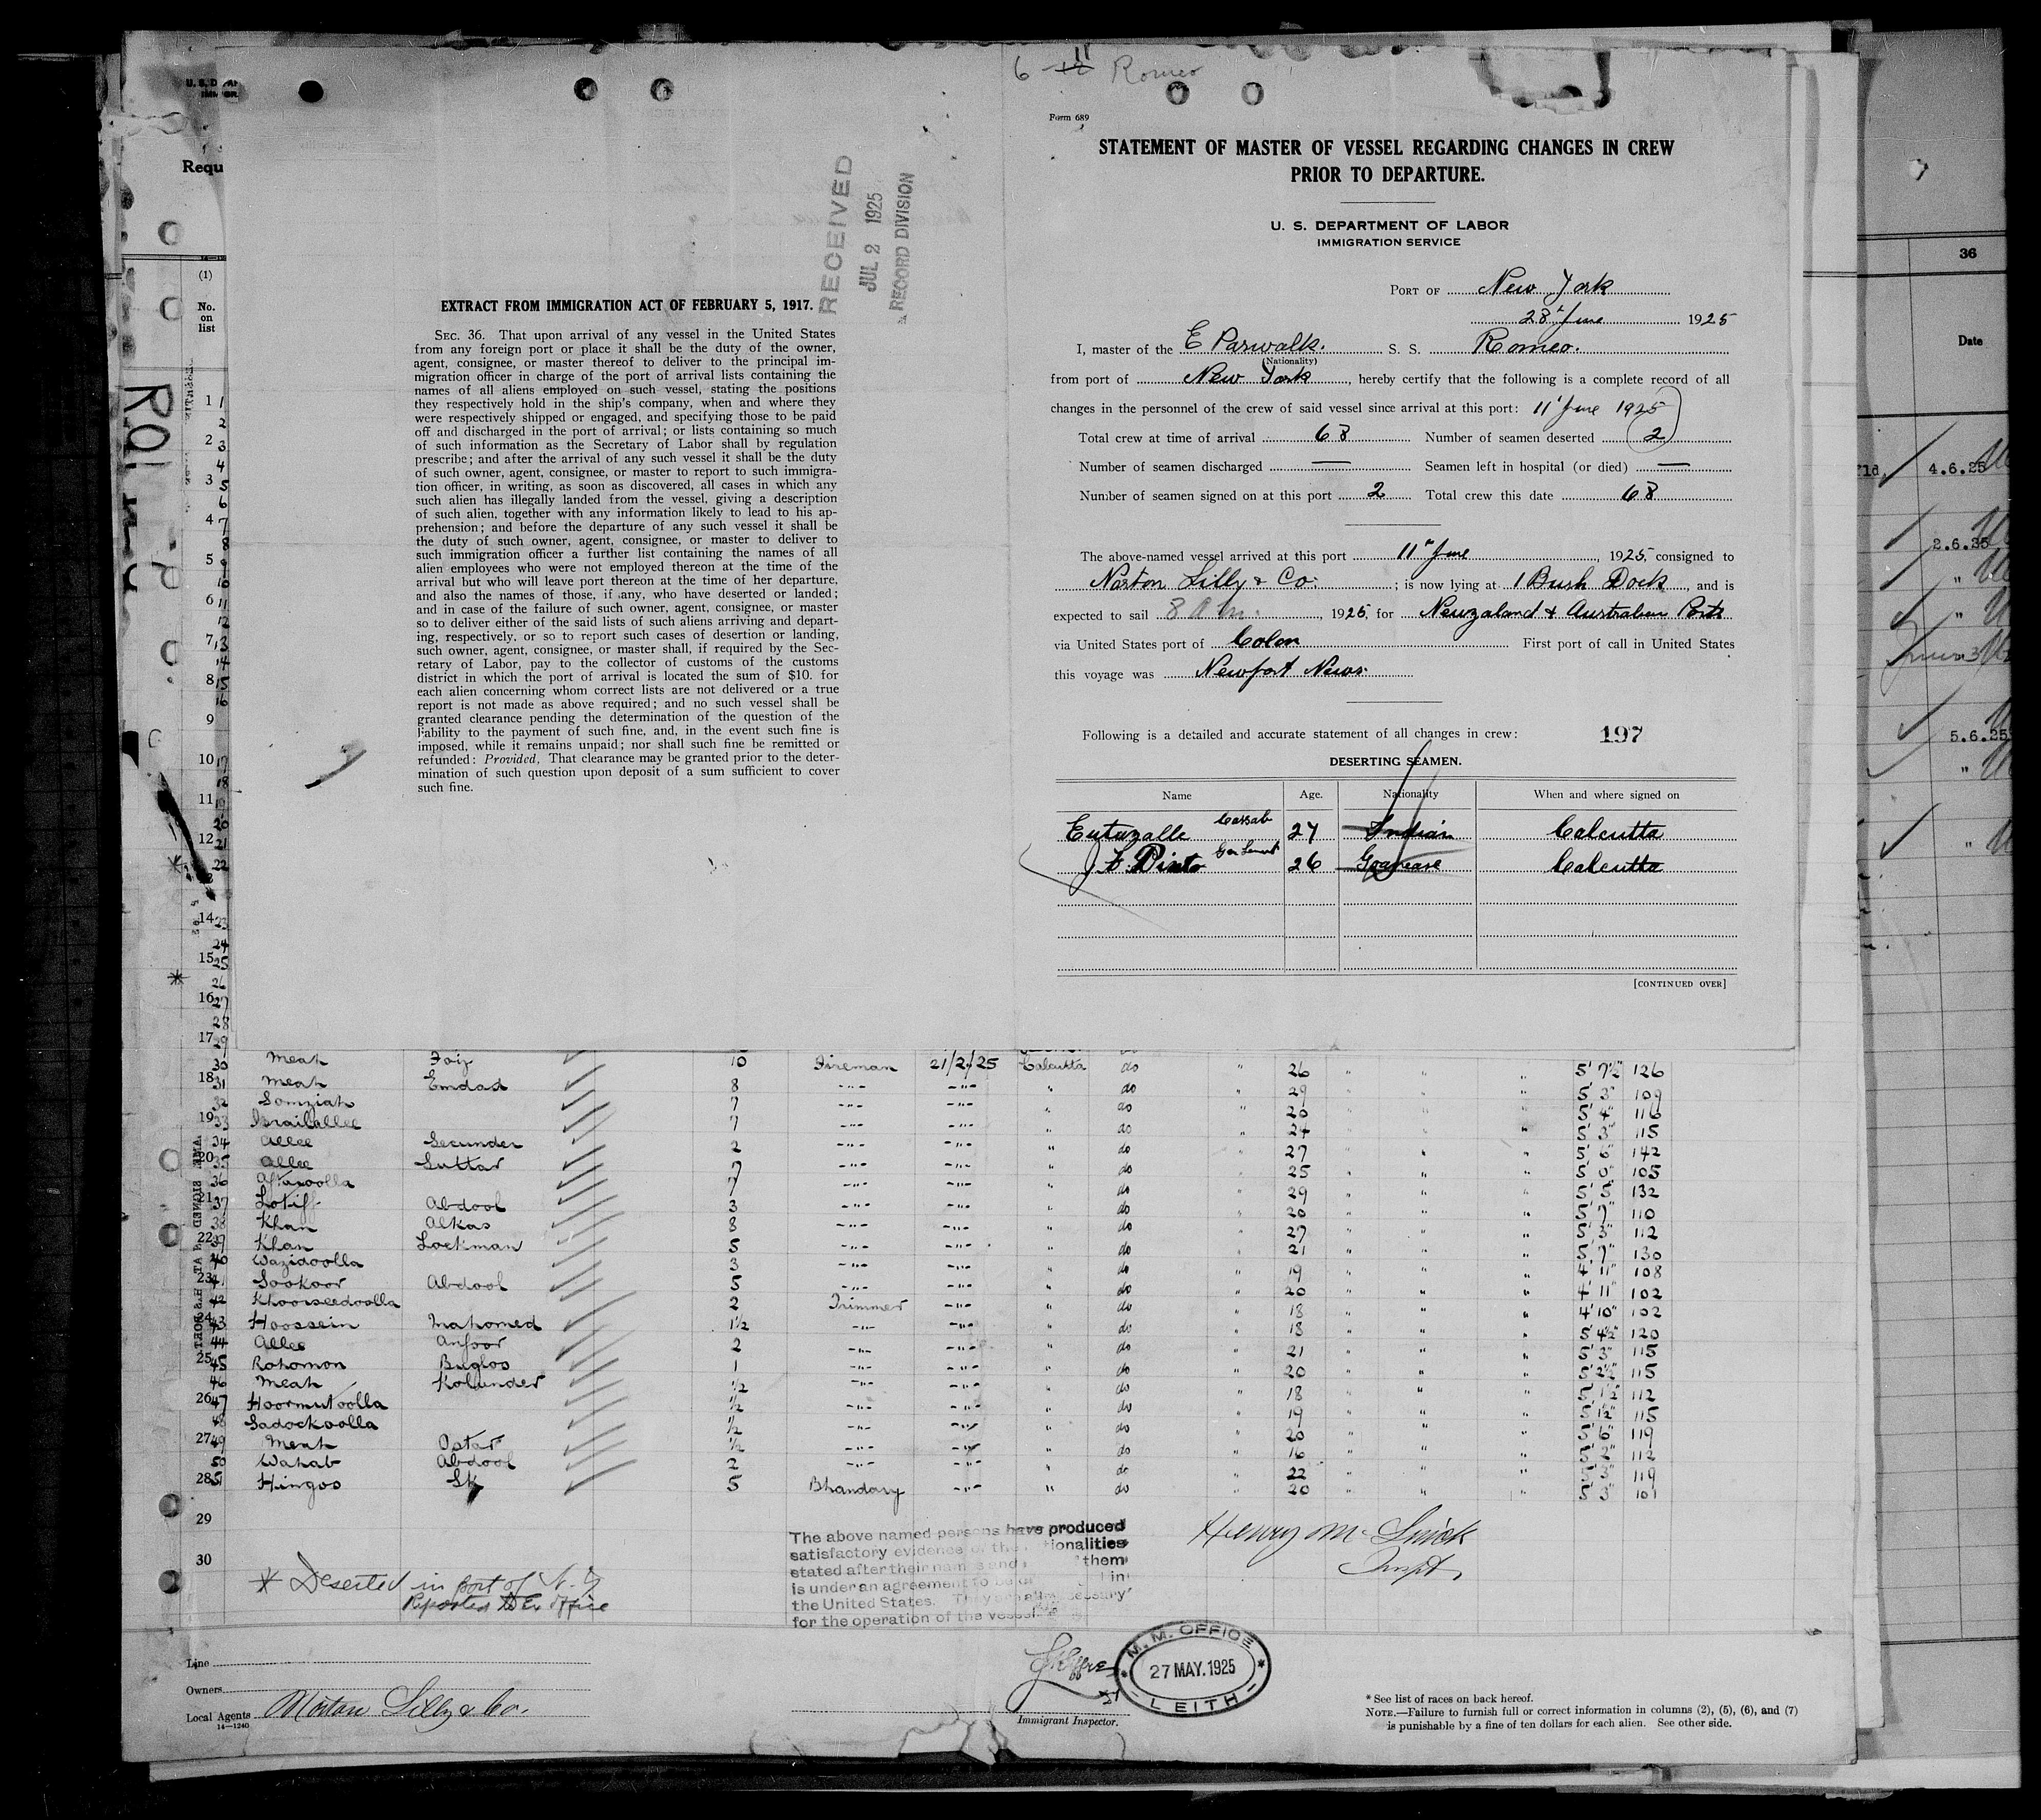 6 11 Romeo
Form 689
STATEMENT OF MASTER OF VESSEL REGARDING CHANGES IN CREW
PRIOR TO DEPARTURE.
U. S. DEPARTMENT OF LABOR
IMMIGRATION SERVICE
PORT OF New York
28 June 1925
I, master of the E Parwalk. S. S. Romeo.
(Nationality)
from port of New York, hereby certify that the following is a complete record of all
changes in the personnel of the crew of said vessel since arrival at this port: 11 June 1925
Total crew at time of arrival 68 Number of seamen deserted 2
Number of seamen discharged — Seamen left in hospital (or died) —
Number of seamen signed on at this port 2 Total crew this date 68
The above-named vessel arrived at this port 11 June, 1925 consigned to
Norton Lilly & Co. ; is now lying at 1 Bush Dock, and is
expected to sail 8 A m., 1925, for Newzaland & Australian Ports
via United States port of Colon First port of call in United States
this voyage was Newport News.
Following is a detailed and accurate statement of all changes in crew: 197
DESERTING SEAMEN.
Name Age. Nationality When and where signed on
Eutuzalle Cassab 27 Indian Calcutta
J. F. Pinto 26 Goanease Calcutta
[CONTINUED OVER]
RECEIVED
JUL 2 1925
RECORD DIVISION
EXTRACT FROM IMMIGRATION ACT OF FEBRUARY 5, 1917.
SEC. 36. That upon arrival of any vessel in the United States
from any foreign port or place it shall be the duty of the owner,
agent, consignee, or master thereof to deliver to the principal im-
migration officer in charge of the port of arrival lists containing the
names of all aliens employed on such vessel, stating the positions
they respectively hold in the ship's company, when and where they
were respectively shipped or engaged, and specifying those to be paid
off and discharged in the port of arrival; or lists containing so much
of such information as the Secretary of Labor shall by regulation
prescribe; and after the arrival of any such vessel it shall be the duty
of such owner, agent, consignee, or master to report to such immigra-
tion officer, in writing, as soon as discovered, all cases in which any
such alien has illegally landed from the vessel, giving a description
of such alien, together with any information likely to lead to his ap-
prehension; and before the departure of any such vessel it shall be
the duty of such owner, agent, consignee, or master to deliver to
such immigration officer a further list containing the names of all
alien employees who were not employed thereon at the time of the
arrival but who will leave port thereon at the time of her departure,
and also the names of those, if any, who have deserted or landed;
and in case of the failure of such owner, agent, consignee, or master
so to deliver either of the said lists of such aliens arriving and depart-
ing, respectively, or so to report such cases of desertion or landing,
such owner, agent, consignee, or master shall, if required by the Sec-
retary of Labor, pay to the collector of customs of the customs
district in which the port of arrival is located the sum of $10. for
each alien concerning whom correct lists are not delivered or a true
report is not made as above required; and no such vessel shall be
granted clearance pending the determination of the question of the
liability to the payment of such fine, and, in the event such fine is
imposed, while it remains unpaid; nor shall such fine be remitted or
refunded: Provided, That clearance may be granted prior to the deter-
mination of such question upon deposit of a sum sufficient to cover
such fine.
Requ
(1)
No.
on
list
36
Date
4.6.25
2.6.25
5.6.25
30 Meah Foiz 10 Fireman 21/2/25 Calcutta do " 26 " " " 5' 7½" 126
31 Meah Emdad 8 -"- -"- " do " 29 " " " 5' 3" 109
32 Somziah 7 -"- -"- " do " 20 " " " 5' 4" 116
33 Israilallee 7 -"- -"- " do " 24 " " " 5' 3" 115
34 Allee Secunder 2 -"- -"- " do " 27 " " " 5' 6" 142
35 Allee Suttar 7 -"- -"- " do " 25 " " " 5' 0" 105
36 Aftaroolla 7 -"- -"- " do " 29 " " " 5' 5" 132
37 Lotiff Abdool 3 -"- -"- " do " 20 " " " 5' 7" 110
38 Khan Alkas 8 -"- -"- " do " 27 " " " 5' 3" 112
39 Khan Lockman 5 -"- -"- " do " 21 " " " 5' 7" 130
40 Wazidoolla 3 -"- -"- " do " 19 " " " 4' 11" 108
41 Sookoor Abdool 5 -"- -"- " do " 20 " " " 4' 11" 102
42 Khoorseedoolla 2 Trimmer -"- " do " 18 " " " 4' 10" 102
43 Hoossein Mahomed 1½ -"- -"- " do " 18 " " " 5' 4½" 120
44 Allee Anfoor 2 -"- -"- " do " 21 " " " 5' 3" 115
45 Rohomon Buglos 1 -"- -"- " do " 20 " " " 5' 2½" 115
46 Meah Kolunder ½ -"- -"- " do " 18 " " " 5' 1½" 112
47 Hoormutoolla ½ -"- -"- " do " 19 " " " 5' 1½" 115
48 Sadockoolla ½ -"- -"- " do " 20 " " " 5' 6" 119
49 Meah Ostar ½ -"- -"- " do " 16 " " " 5' 2" 112
50 Wahab Abdool 2 -"- -"- " do " 22 " " " 5' 3" 119
51 Hingoo Sk 5 Bhandary -"- " do " 20 " " " 5' 3" 101
29
30
* Deserted in port of N.Y
Reported
The above named persons have produced
satisfactory evidence of the nationalities
stated after their names and them
is under an agreement to be in
the United States. They are all necessary
for the operation of the vessel
Henry M
Inspt.
M. M. OFFICE
27 MAY. 1925
LEITH
Line
Owners
Local Agents Norton Lilly & Co.
14—1240
Immigrant Inspector.
* See list of races on back hereof.
NOTE.—Failure to furnish full or correct information in columns (2), (5), (6), and (7)
is punishable by a fine of ten dollars for each alien. See other side.